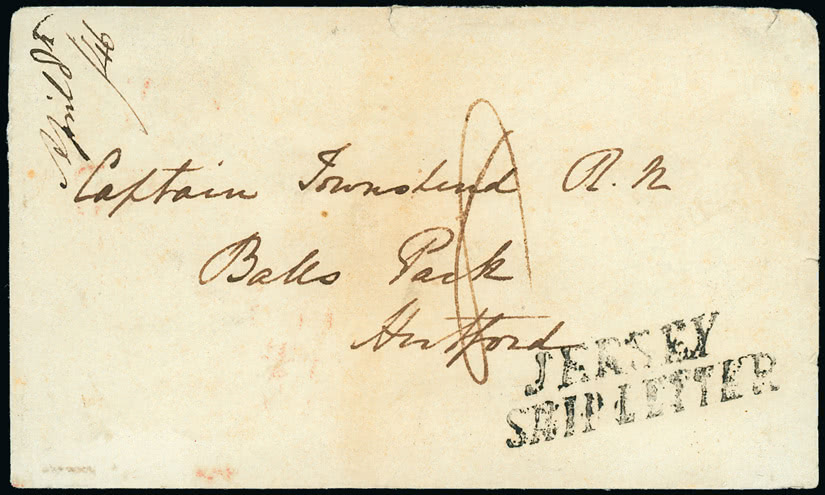 April 8th
/46
Captain Townshend R.N
Balls Park
Hertford
8
JERSEY
SHIP LETTER